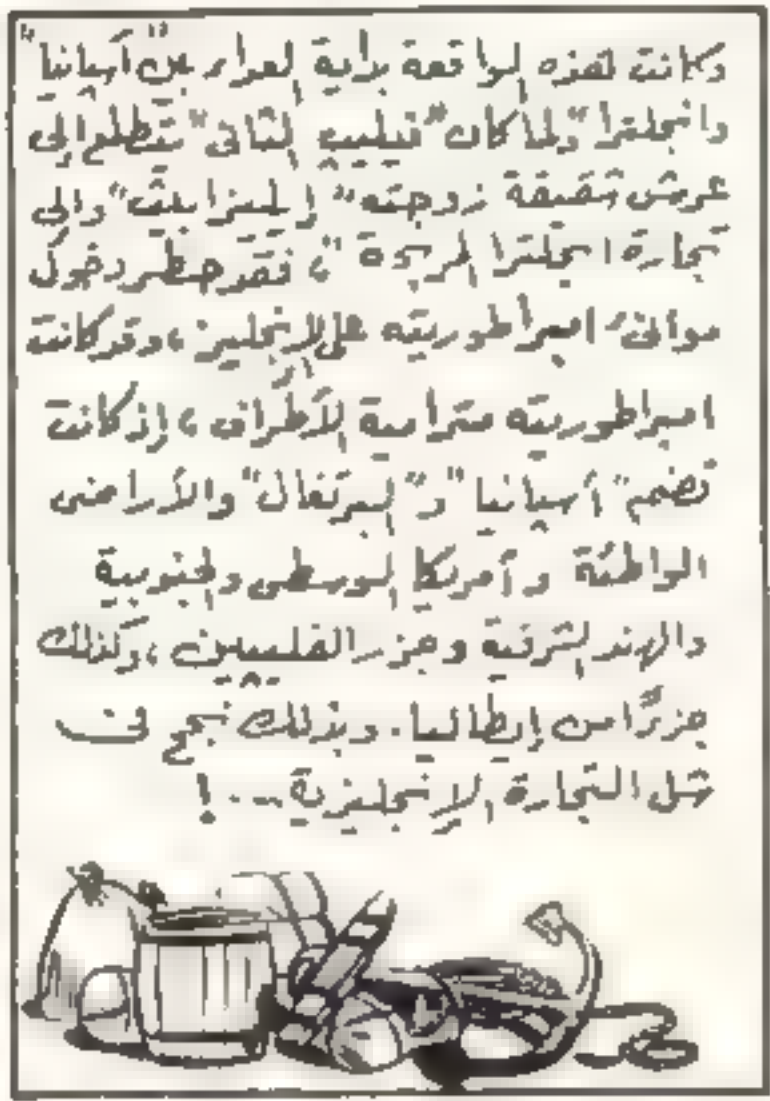 وكانت هذه الواقعة بداية العداء بين "أسبانيا"
وانجلترا" ولما كان "فيليب الثانى" يتطلع إلى
عرش شقيقة زوجته "إليزابيث" والى
تجارة انجلترا المربحة "، فقد حظر دخول
موانئ امبراطوريته على الإنجليز، وقد كانت
امبراطوريته مترامية الأطراف، إذ كانت
تضم "أسبانيا" و"البرتغال" والأراضى
الواطئة وأمريكا الوسطى والجنوبية
والهند الشرقية وجزر الفليبين، وكذلك
جزءًا من إيطاليا. وبذلك نجح فى
شل التجارة الإنجليزية...!